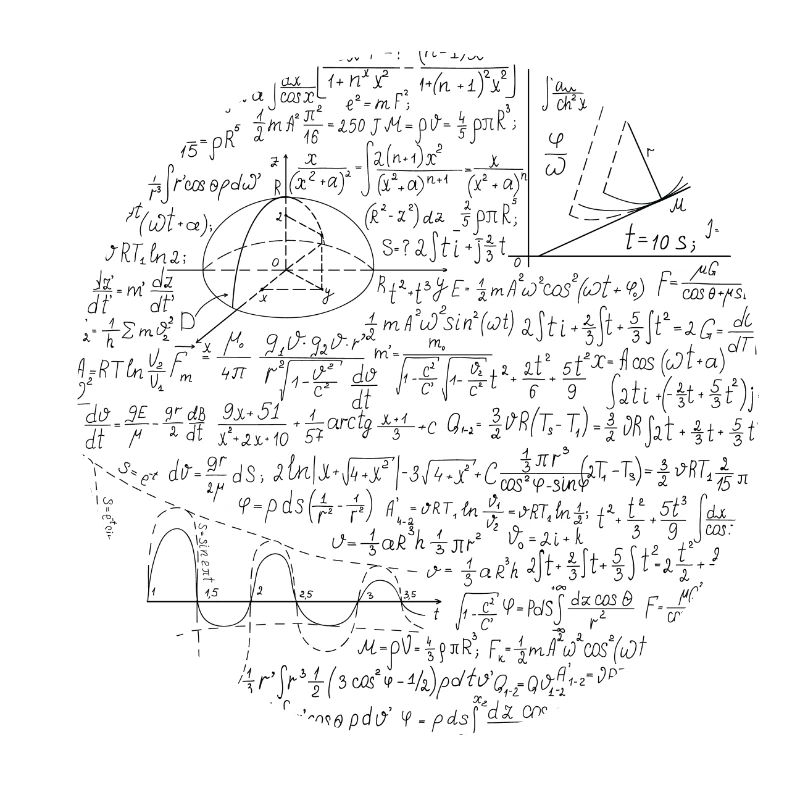 1+n^x x² − 1+(n+1)²x²
∫ dx/cosx
e² = mF²;
1/2 mA² π²/16 = 250 J M = ρϑ = 4/5 ρπR³;
15 = ρR⁵
∫ /ch²x
φ/ω
r
M
t = 10 s;
0
1/r³ ∫r'cos θρdω'
z
R
x/(x²+a)² = ∫ 2(n+1)x²/(x²+a)ⁿ⁺¹ = x/(x²+a)ⁿ
(ωt+a);
(R²-z²)dz 2/5 ρπR⁵;
ϑRT₁ln2;
S=? 2∫ti+∫2/3 t
2
0
x
y
D
x
dz'/dt' = m' dz/dt'
R t²+t³y E = 1/2 mA²ω²cos²(ωt+φ₀) F = μG/cosθ+μs.
= 1/h Σmϑ₂²
1/2 mA²ω²sin²(ωt) 2∫ti+2/3∫t+5/3∫t² = 2G =
A = RTln V₂/V₁ F_m = μ₀/4π g₁ϑ·g₂ϑ·r'/r² √1-ϑ²/c² dϑ/dt m' = m₀/√1-c²/C' √1-ϑ₂/c² t²+2t²/6+5t²/9 x = Acos(ωt+a)
∫2ti+(-2/3t+5/3t²)j
dϑ/dt = gE/μ - gr/2 dB/dt 9x+51/x²+2x+10 + 1/57 arctg x+1/3 +c Q₁₋₂ = 3/2 ϑR(T₃-T₁) = 3/2 ϑR∫2t+2/3t+5/3t
S=e⁻ᵗ dϑ = gr/2μ dS; 2ln|x+√4+x²|-3√4+x²+C 1/3πr³/cos²φ-sinφ (2T₁-T₃) = 3/2 ϑRT₁ 2/15 π
φ = ρds(1/r²-1/r²) A'₄₋₂ = ϑRT₁ln ϑ₁/ϑ₂ = ϑRT₁ln1/2; t²+t²/3+5t³/9 ∫dx/cos:
S=sinεπt
ϑ = 1/3 aR³h 1/3πr² ϑ₀ = 2i+k
ϑ = 1/3 aR³h 2∫t+2/3∫t+5/3∫t² = 2 t²/2 +
1 1,5 2 2,5 3 3,5 t
√1-c²/C' φ = Pds∫ dz cosθ/r² F =
M = ρV = 4/3 ρπR³; Fₖ = 1/2 mA²ω²cos²(ωt
1/3 r'∫r³ 1/2 (3cos²φ-1/2)ρdtϑ' Q₁₋₂ = Qϑ₁₋₂ A'₁₋₂ =
cosθρdϑ' φ = ρds∫ dz cos